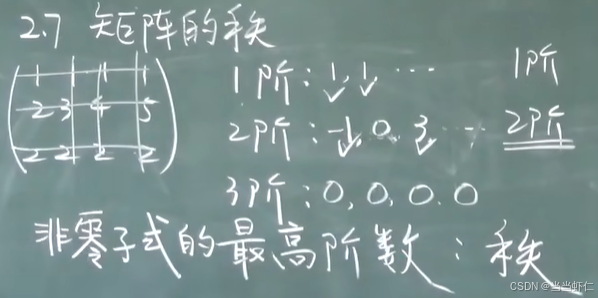 2.7 矩阵的秩
1 1 1 1
2 3 4 5
2 2 2 2
1阶: 1, 1, … 1阶
2阶: 1, 0, 3, … 2阶
3阶: 0, 0, 0, 0
非零子式的最高阶数: 秩
CSDN @当当虾仁